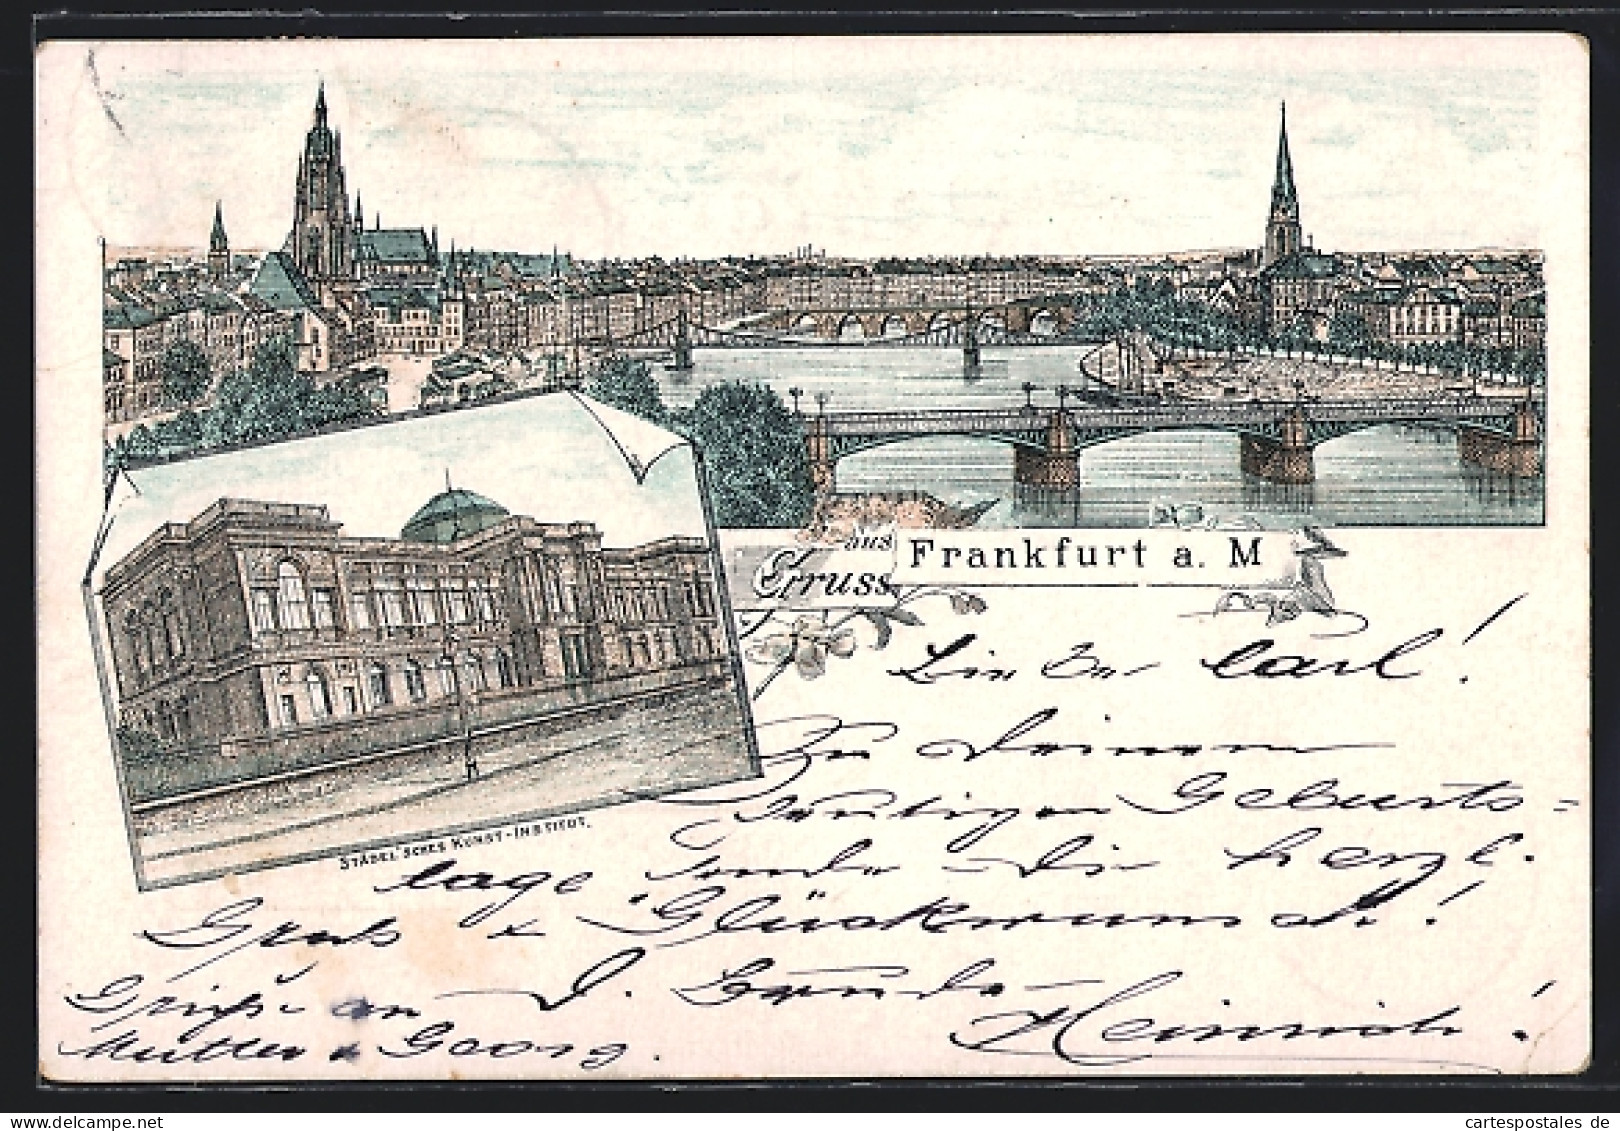 Gruss aus Frankfurt a. M
STÄDEL'SCHES KUNST-INSTITUT.
Lieber Carl!
Zu Deinem
heutigen Geburts=
tage sende Dir herzl.
Gruß & Glückwunsch!
D. Bruder
Heinrich!
Grüße an
Mutter & Georg.
cartespostales de